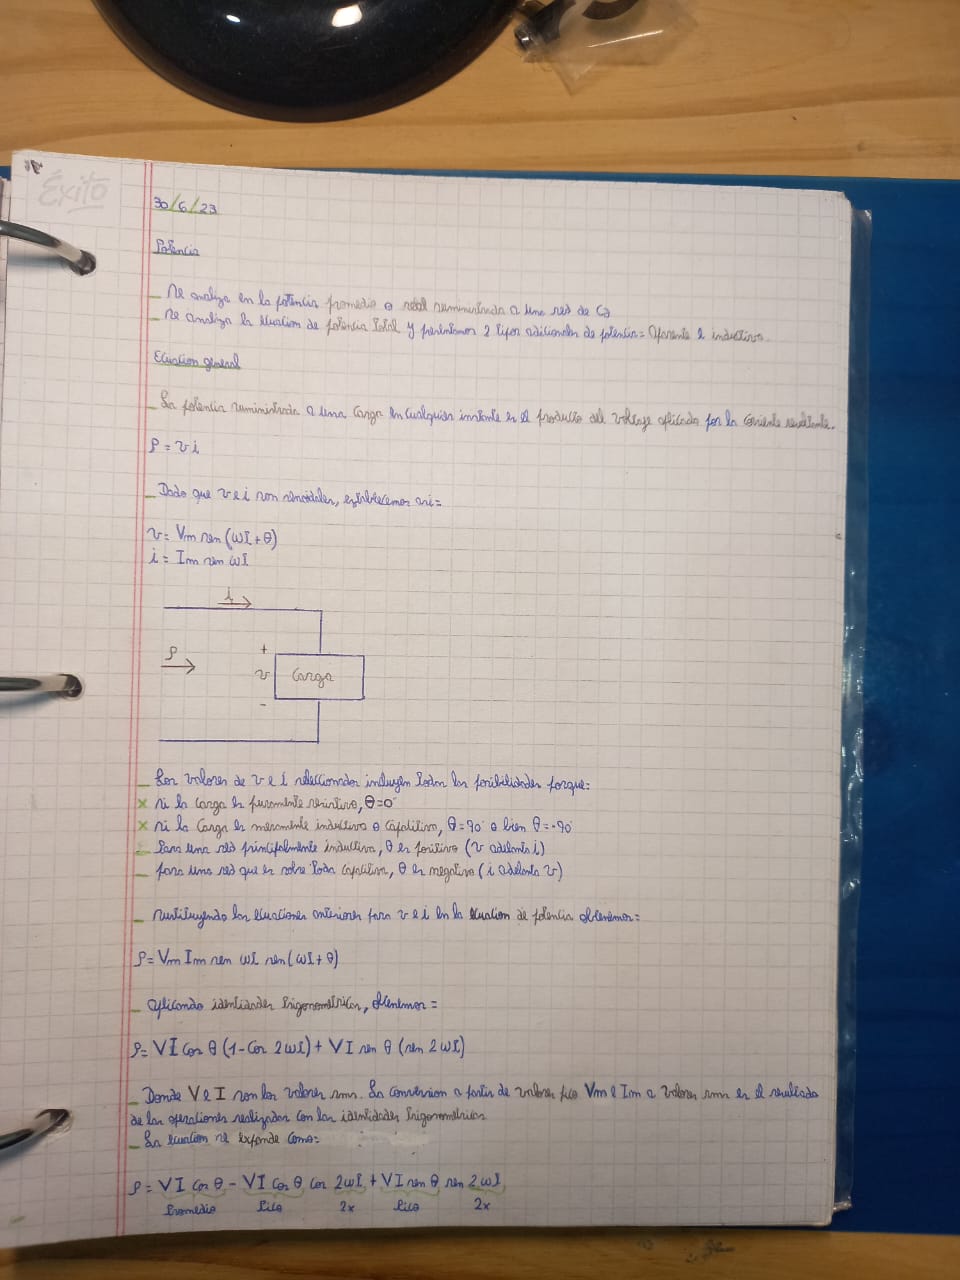 Éxito
30/6/23
Potencia
_ se analiza en la potencia promedio o real suministrada a una red de Ca
_ se analiza la ecuacion de potencia total y presentamos 2 tipos adicionales de potencia= aparente e inductiva.
Ecuacion general
_ La potencia suministrada a una carga en cualquier instante es el producto del voltaje aplicado por la coriente resultante.
P = v i
_ Dado que v e i son senoidales, establecemos asi=
v = Vm sen (ωt + θ)
i = Im sen ωt
i
P
+
v Carga
-
_ Los valores de v e i relaccionados incluyen todas las posibilidades porque:
x si la carga es puramente resistiva, θ=0°
x si la carga es meramente inductiva o capacitiva, θ=90° o bien θ=-90°
_ Para una red principalmente inductiva, θ es positiva (v adelanta i)
_ para una red que es sobre toda capacitiva, θ es negativa (i adelanta v)
_ sustituyendo las ecuaciones anteriores para v e i en la ecuacion de potencia obtenemos=
P = Vm Im sen ωt sen(ωt + θ)
_ aplicando identidades trigonometricas, obtenemos =
P= VI cos θ (1-cos 2ωt) + VI sen θ (sen 2ωt)
_ Donde V e I son los valores rms. La conversion a partir de valores pico Vm e Im a valores rms es el resultado
de las operaciones realizadas con las identidades trigonometricas
_ La ecuacion se expande como:
P = VI cos θ - VI cos θ cos 2ωt + VI sen θ sen 2ωt
Promedio Pico 2x Pico 2x